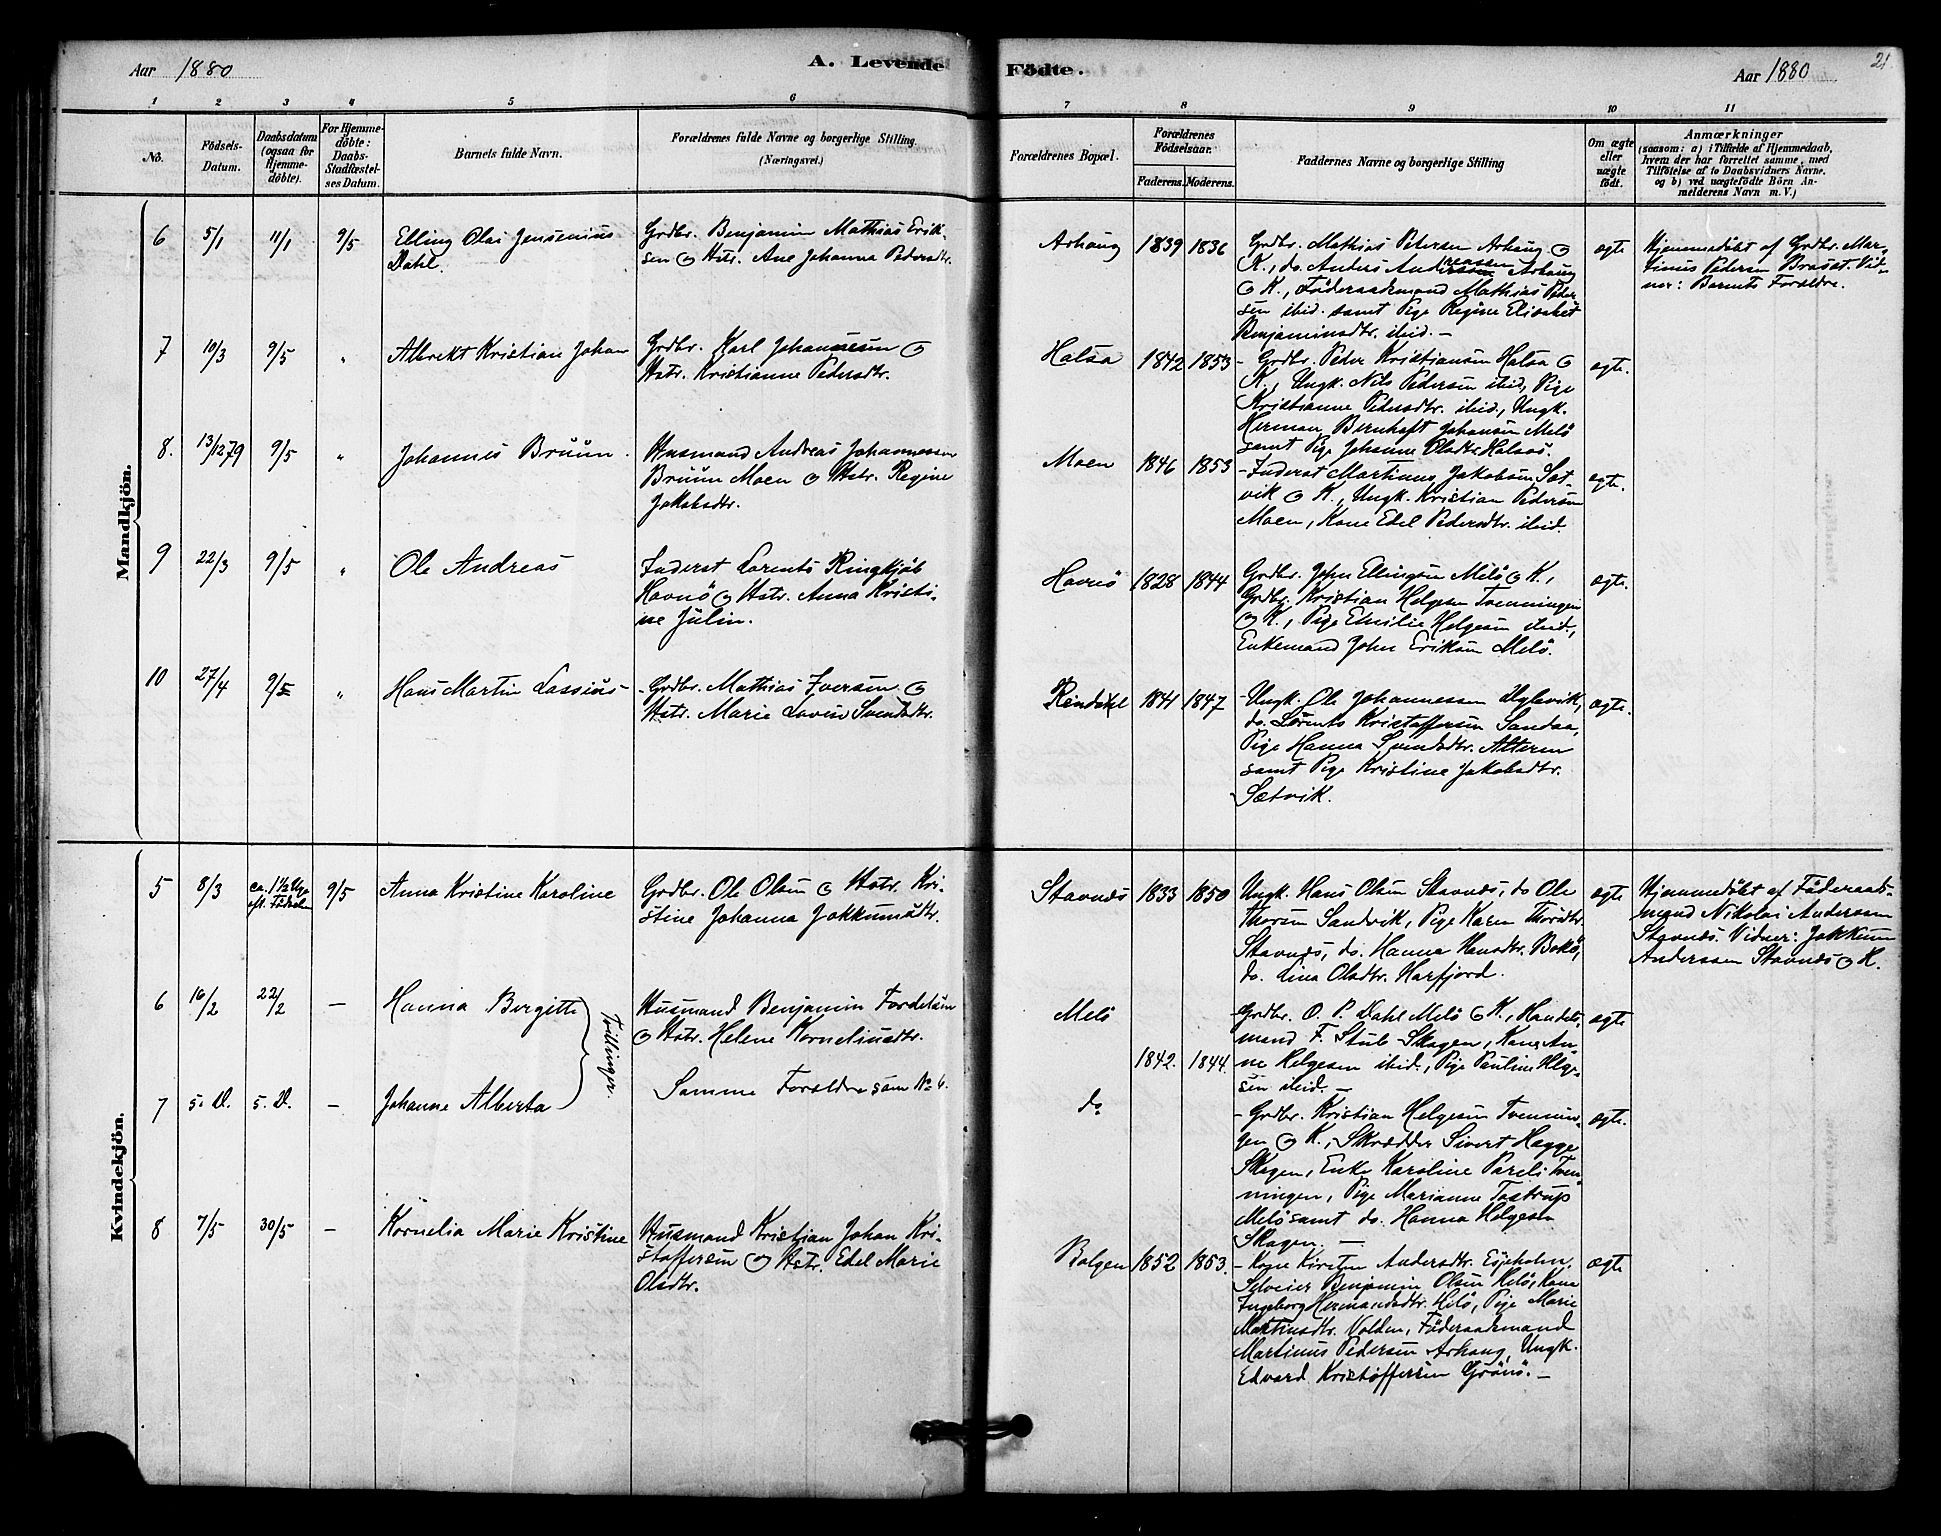 Aar 1880
A. Levende Födte.
Aar 1880
21.
1 2 3 4 5 6 7 8 9 10 11
No.
Födsels-
Datum.
Daabsdatum
(ogsaa for
Hjemme-
döbte).
For Hjemme-
döbte:
Daabs-
Stadfæstel-
ses Datum.
Barnets fulde Navn.
Forældrenes fulde Navne og borgerlige Stilling
(Næringsvei.)
Forældrenes Bopæl.
Forældrenes
Födselsaar.
Faderens. Moderens.
Faddernes Navne og borgerlige Stilling
Om ægte
eller
uægte
födt.
Anmærkninger
(saasom: a) i Tilfælde af Hjemmedaab,
hvem der har forrettet samme, med
Tilföielse af to Daabsvidners Navne,
og b) ved uægtefödte Börn An-
melderens Navn m. V.)
Mandkjön.
6 5/1 11/1 9/5
Elling Olai Jensenius
Dahl.
Grdbr. Benjamin Mathias Erik-
sen og Hstr. Ane Johanna Pedersdtr.
Arhaug 1839 1836
Grdbr. Mathias Petersen Arhaug og
K., do. Anders Andreassen Arhaug
og K., Föderaadsmand Mathias Peder
sen ibid. samt Pige Regine Elisabet
Benjaminsdtr. ibid. —
ægte
Hjemmedöbt af Grdbr. Mar-
tinus Pedersen Brasæt. Vid-
ner: Barnets Forældre.
7 10/3 9/5 "
Albrekt Kristian Johan
Grdbr. Karl Johannesen og
Hstr. Kristianne Pedersdtr.
Halsa 1842 1853
- Grdbr. Peder Kristiansen Halsa og
K., Ungk. Nils Pedersen ibid, Pige
Kristianne Pedersdtr. ibid., Ungk.
Herman Bernhoft Johansen Melö
samt Pige Johanne Olsdtr Halsaa.
ægte.
8. 13/12 79 9/5 "
Johannes Brüün
Husmand Andreas Johannessen
Brüün Moen og Hstr. Regine
Jakobsdtr.
Moen 1846 1853
- Inderst Martinus Jakobsen Sæt-
vik og K., Ungk. Kristian Pedersen
Moen, Kone Edel Pedersdtr. ibid.
ægte.
9 22/3 9/5 "
Ole Andreas
Inderst Lorents Ringkjöb
Havnö og Hstr. Anna Kristi-
ne Julin.
Havnö 1828 1844
Grdbr. John Ellingsen Melö og K.,
Grdbr. Kristian Helgesen Tvenningen
og K., Pige Emilie Helgesen ibid.,
Enkemand John Eriksen Melö.
ægte.
10 27/4 9/5 "
Hans Martin Lassius
- Grdbr. Mathias Iversen og
Hstr. Marie Lovise Svendsdtr.
Reindal 1841 1847
- Ungk. Ole Johannessen Uglevik,
do. Lorents Kristoffersen Sandaa,
Pige Hanna Svendsdtr. Alteren
samt Pige Kristine Jakobsdtr.
Sætvik.
ægte.
Kvindekjön.
5 8/3 ca. 1 1/2 Uge
eft. Födselen 9/5
Anna Kristine Karoline
Grdbr. Ole Olsen og Hstr. Kri-
stine Johanna Jokkumsdtr.
Stavnes 1833 1850
Ungk. Hans Olsen Stavnes, do Ole
Thorsen Sandvik, Pige Karen Thorsdtr.
Stavnes, do. Hanna Hansdtr. Bokö,
do. Lina Olsdtr. Harfjord.
ægte
Hjemmedöbt af Föderaads-
mand Nikolai Anderssen
Stavnes. Vidner: Jokkum
Anderssen Stavnes og K.
6 16/2 22/2 —
Hanna Birgitte
Tvillinger.
Husmand Benjamin Fordelsen
og Hstr. Helene Korneliusdtr.
Melö 1842. 1844.
- Grdbr. O. P. Dahl Melö og K., Handels-
mand F. Stub Skagen, Kone An-
ne Helgesen ibid., Pige Pauline Helge-
sen ibid. —
ægte
7 s. D. s. D. —
Johanne Alberta
Samme Forældre som No 6.
do
- Grdbr. Kristian Helgesen Tvennin-
gen og K., Skrædder Sivert Hagge
Skagen, Enke Karoline Pareli Tven-
ningen, Pige Marianne Tostrup
Melö samt do. Hanna Helgesen
Skagen. —
ægte.
8 7/5 30/5 —
Kornelia Marie Kristine
Husmand Kristian Johan Kri-
stoffersen og Hstr. Edel Marie
Olsdtr.
Bolgen 1852 1853.
- Kone Kirsten Andersdtr. Esjeholm,
Selveier Benjamin Olsen Melö, Kone
Ingeborg Hermansdtr. Melö, Pige Marie
Martinusdtr. Volden, Föderaadsmand
Martinus Pedersen Arhaug, Ungk.
Edvard Kristoffersen Grönö. —
ægte